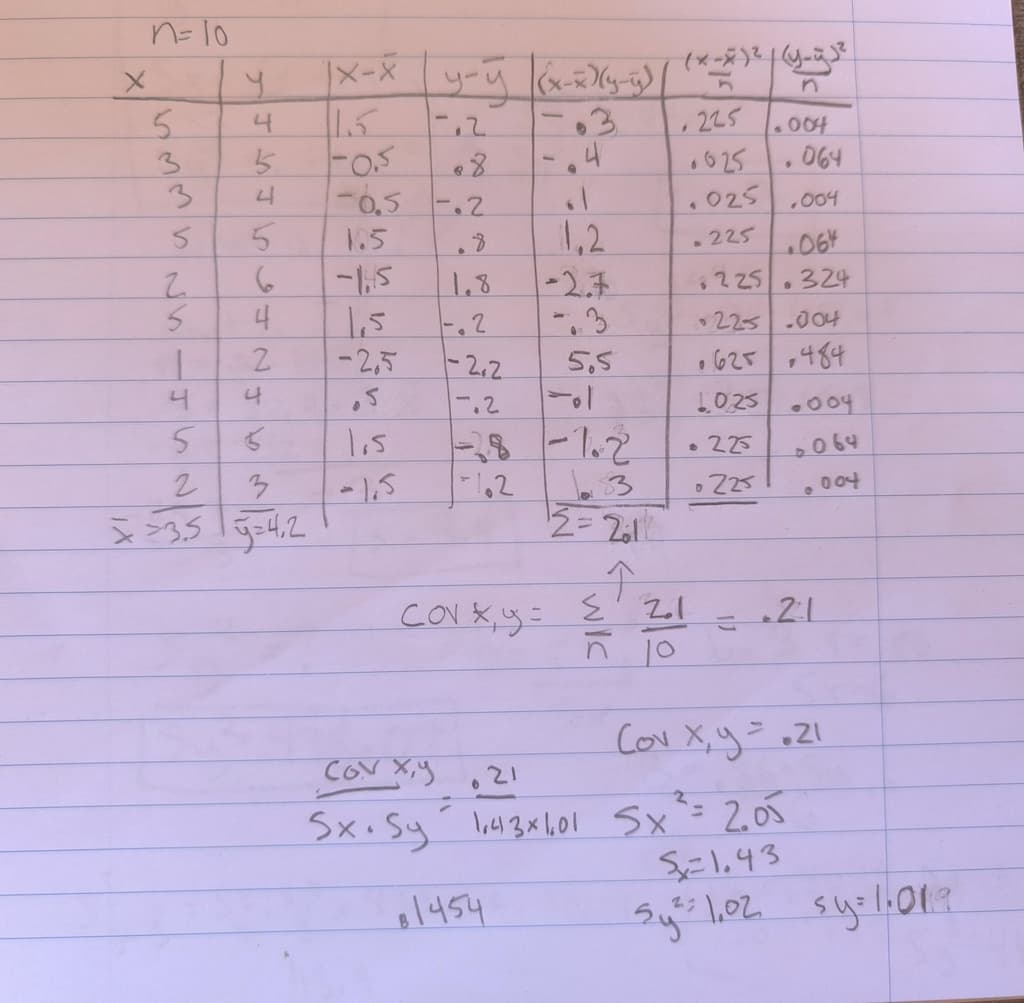 n=10
x y x-x̄ y-ȳ (x-x̄)(y-ȳ) (x-x̄)²/n (y-ȳ)²/n
5 4 1.5 -.2 -.3 .225 .004
3 5 -0.5 .8 -.4 .025 .064
3 4 -0.5 -.2 .1 .025 .004
5 5 1.5 .8 1.2 .225 .064
2 6 -1.5 1.8 -2.7 .225 .324
5 4 1.5 -.2 -.3 .225 .004
1 2 -2.5 -2.2 5.5 .625 .484
4 4 .5 -.2 -.1 .025 .004
5 5 1.5 -.8 -1.2 .225 .064
2 3 -1.5 -1.2 1.83 .225 .004
x̄=3.5 ȳ=4.2 Σ=2.1
↑
COV x,y = Σ/n 2.1/10 = .21
Cov x,y = .21
cov x,y / Sx·Sy = .21 / 1.43×1.01 Sx² = 2.05
Sx=1.43
.1454 sy²=1.02 sy=1.01